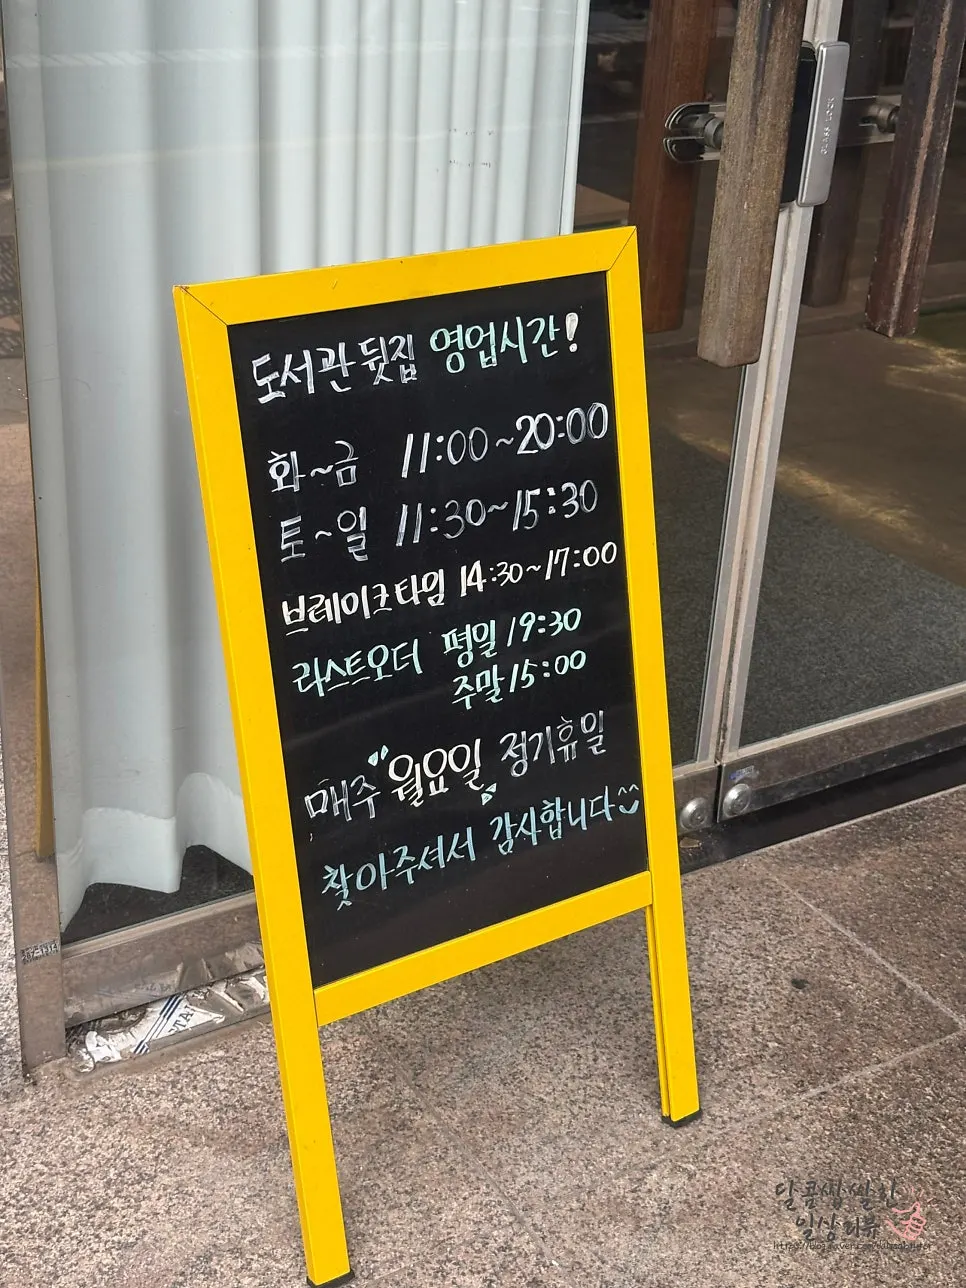 도서관 뒷집 영업시간!
화~금 11:00~20:00
토~일 11:30~15:30
브레이크타임 14:30~17:00
라스트오더 평일 19:30
주말 15:00
매주 "월요일" 정기휴일
찾아주셔서 감사합니다^^
달콤쌉쌀한
일상리뷰